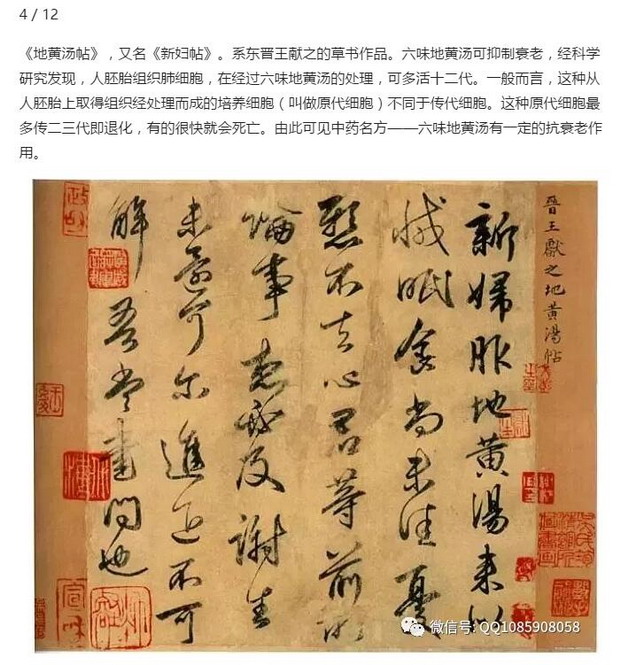 4 / 12
《地黄汤帖》，又名《新妇帖》。系东晋王献之的草书作品。六味地黄汤可抑制衰老，经科学
研究发现，人胚胎组织肺细胞，在经过六味地黄汤的处理，可多活十二代。一般而言，这种从
人胚胎上取得组织经处理而成的培养细胞（叫做原代细胞）不同于传代细胞。这种原代细胞最
多传二三代即退化，有的很快就会死亡。由此可见中药名方——六味地黄汤有一定的抗衰老作
用。
晉王獻之地黄湯帖
新婦服地黄湯来似
減眠食尚未佳憂
懸不去心君等前所
論事想及謝生
未還可尔進退不可
解吾當書問也
微信号: QQ1085908058